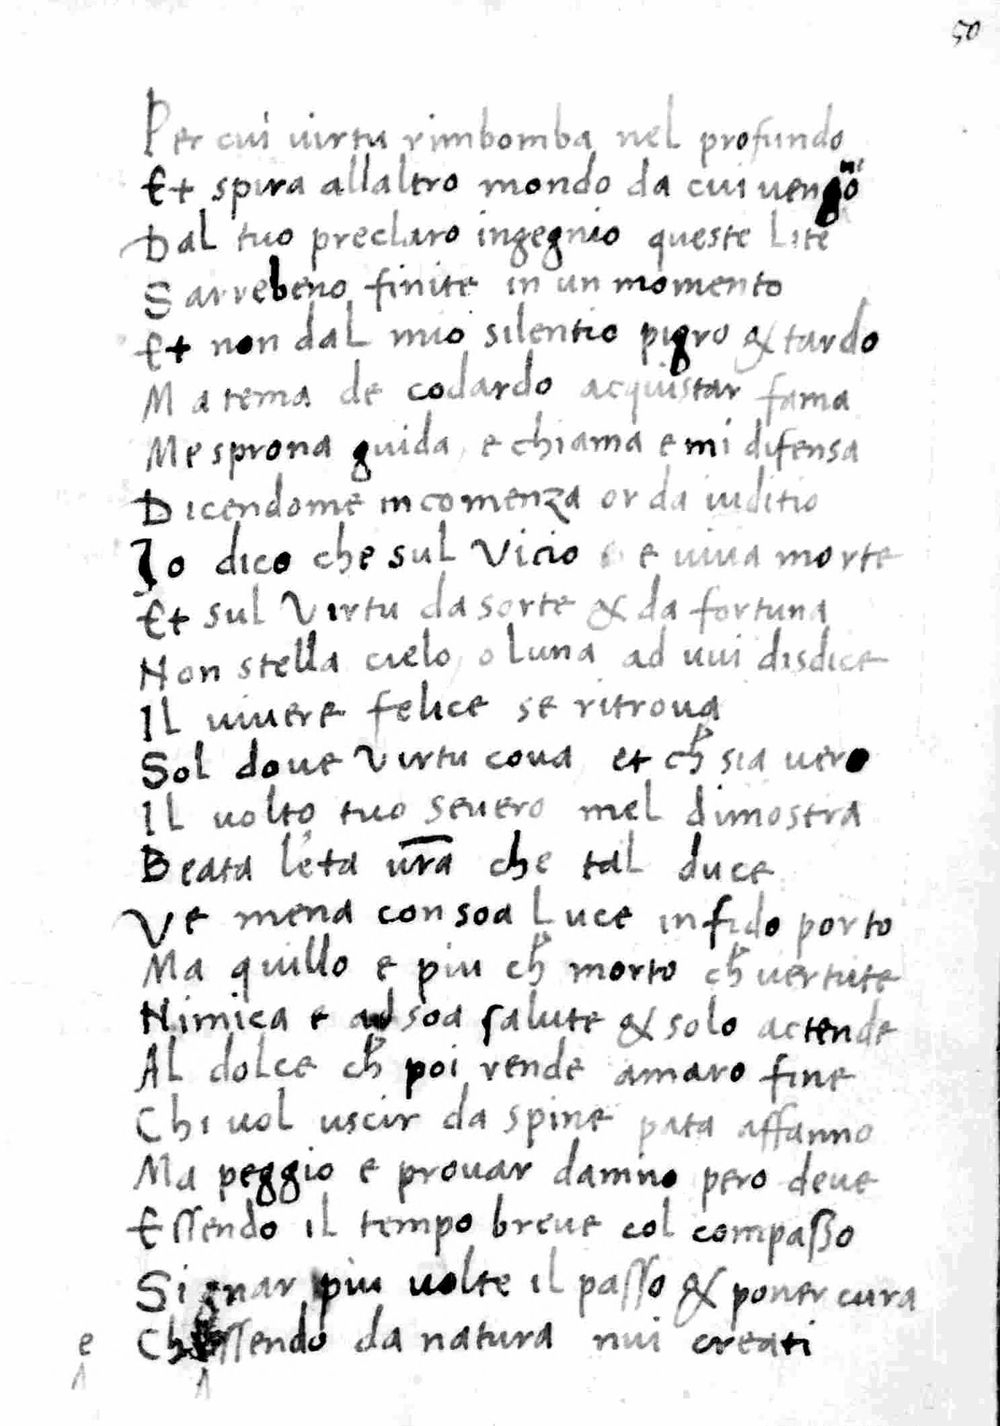 50
Per cui uirtu rimbomba nel profundo
Et spira allaltro mondo da cui uen
Dal tuo preclaro ingegnio queste Lite
Sarrebeno finite in un momento
Et non dal mio silentio pigro & tardo
Ma tema de codardo acquistar fama
Me sprona guida e chiama e mi difensa
Dicendome incomenza or da iuditio
Io dico che sul Vicio e uiua morte
Et sul Virtu da sorte & da fortuna
Non stella cielo o luna ad uui disdice
Il uiuere felice se ritroua
Sol doue Virtu coua et ch̅ sia uero
Il uolto tuo seuero mel dimostra
Beata l'eta ur̅a che tal duce
Ve mena con soa Luce in fido porto
Ma quillo e piu ch̅ morto ch̅ uertute
Nimica e ad soa salute & solo actende
Al dolce ch̅ poi rende amaro fine
Chi uol uscir da spine pata affanno
Ma peggio e prouar damno pero deue
Essendo il tempo breue col compasso
Signar piu uolte il passo & poner cura
e Ch ssendo da natura nui creati